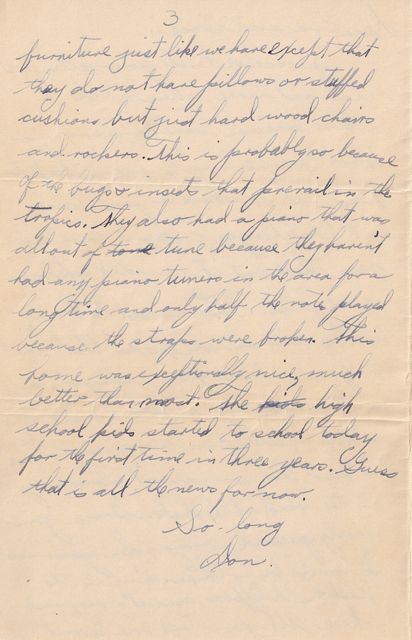 3
furniture just like we have except that
they do not have pillows or stuffed
cushions but just hard wood chairs
and rockers. This is probably so because
of the bugs & insects that prevail in the
tropics. They also had a piano that was
all out of tone tune because they haven't
had any piano tuners in the area for a
long time and only half the note played
because the straps were broken. This
home was exceptionally nice, much
better than most. The kids high
school kids started to school today
for the first time in three years. Guess
that is all the news for now.
So-long
Don.